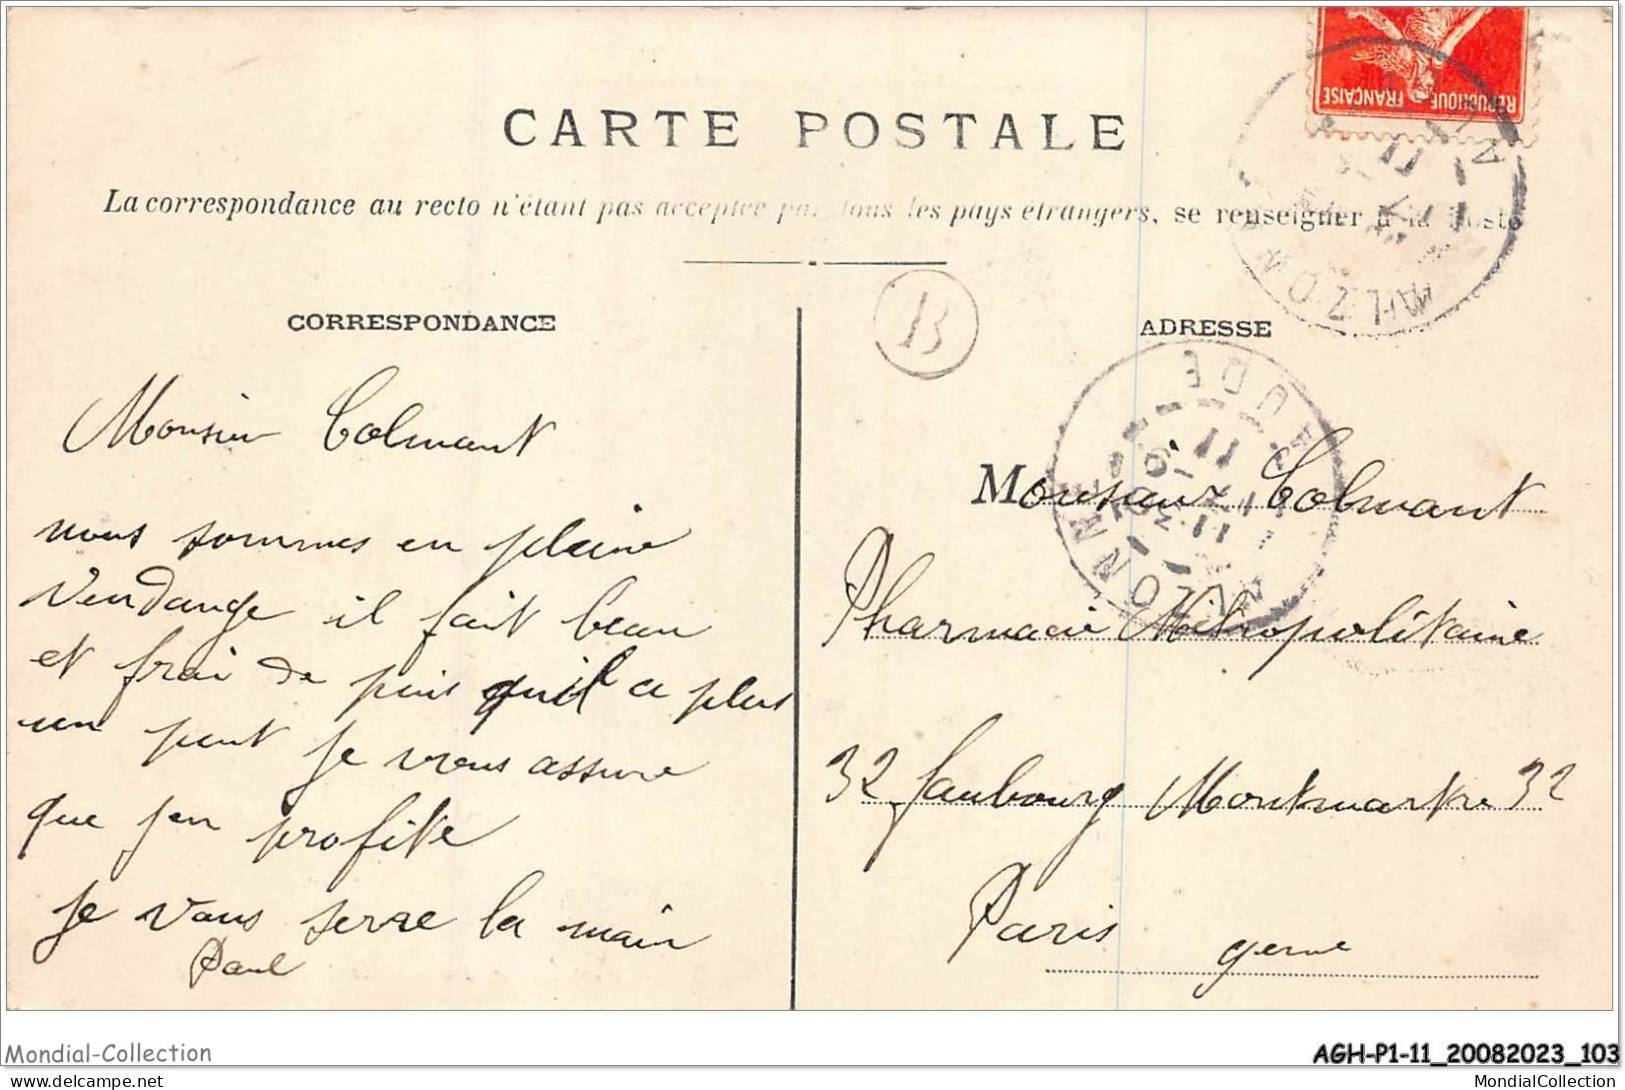 RÉPUBLIQUE FRANÇAISE
CARTE POSTALE
La correspondance au recto n'étant pas acceptée par tous les pays étrangers, se renseigner à la Poste
B
CORRESPONDANCE
Monsieur Colmant
nous sommes en pleine
vendange il fait beau
et frai de puis quil a plus
un peut je vous assure
que jen profite
je vous serre la main
Paul
ADRESSE
ALZONNE
AUDE
Monsieur Colmant
Pharmacie Métropolitaine
32 faubourg Montmartre 32
Paris
Mondial-Collection
AGH-P1-11_20082023_103
delcampe.net
MondialCollection